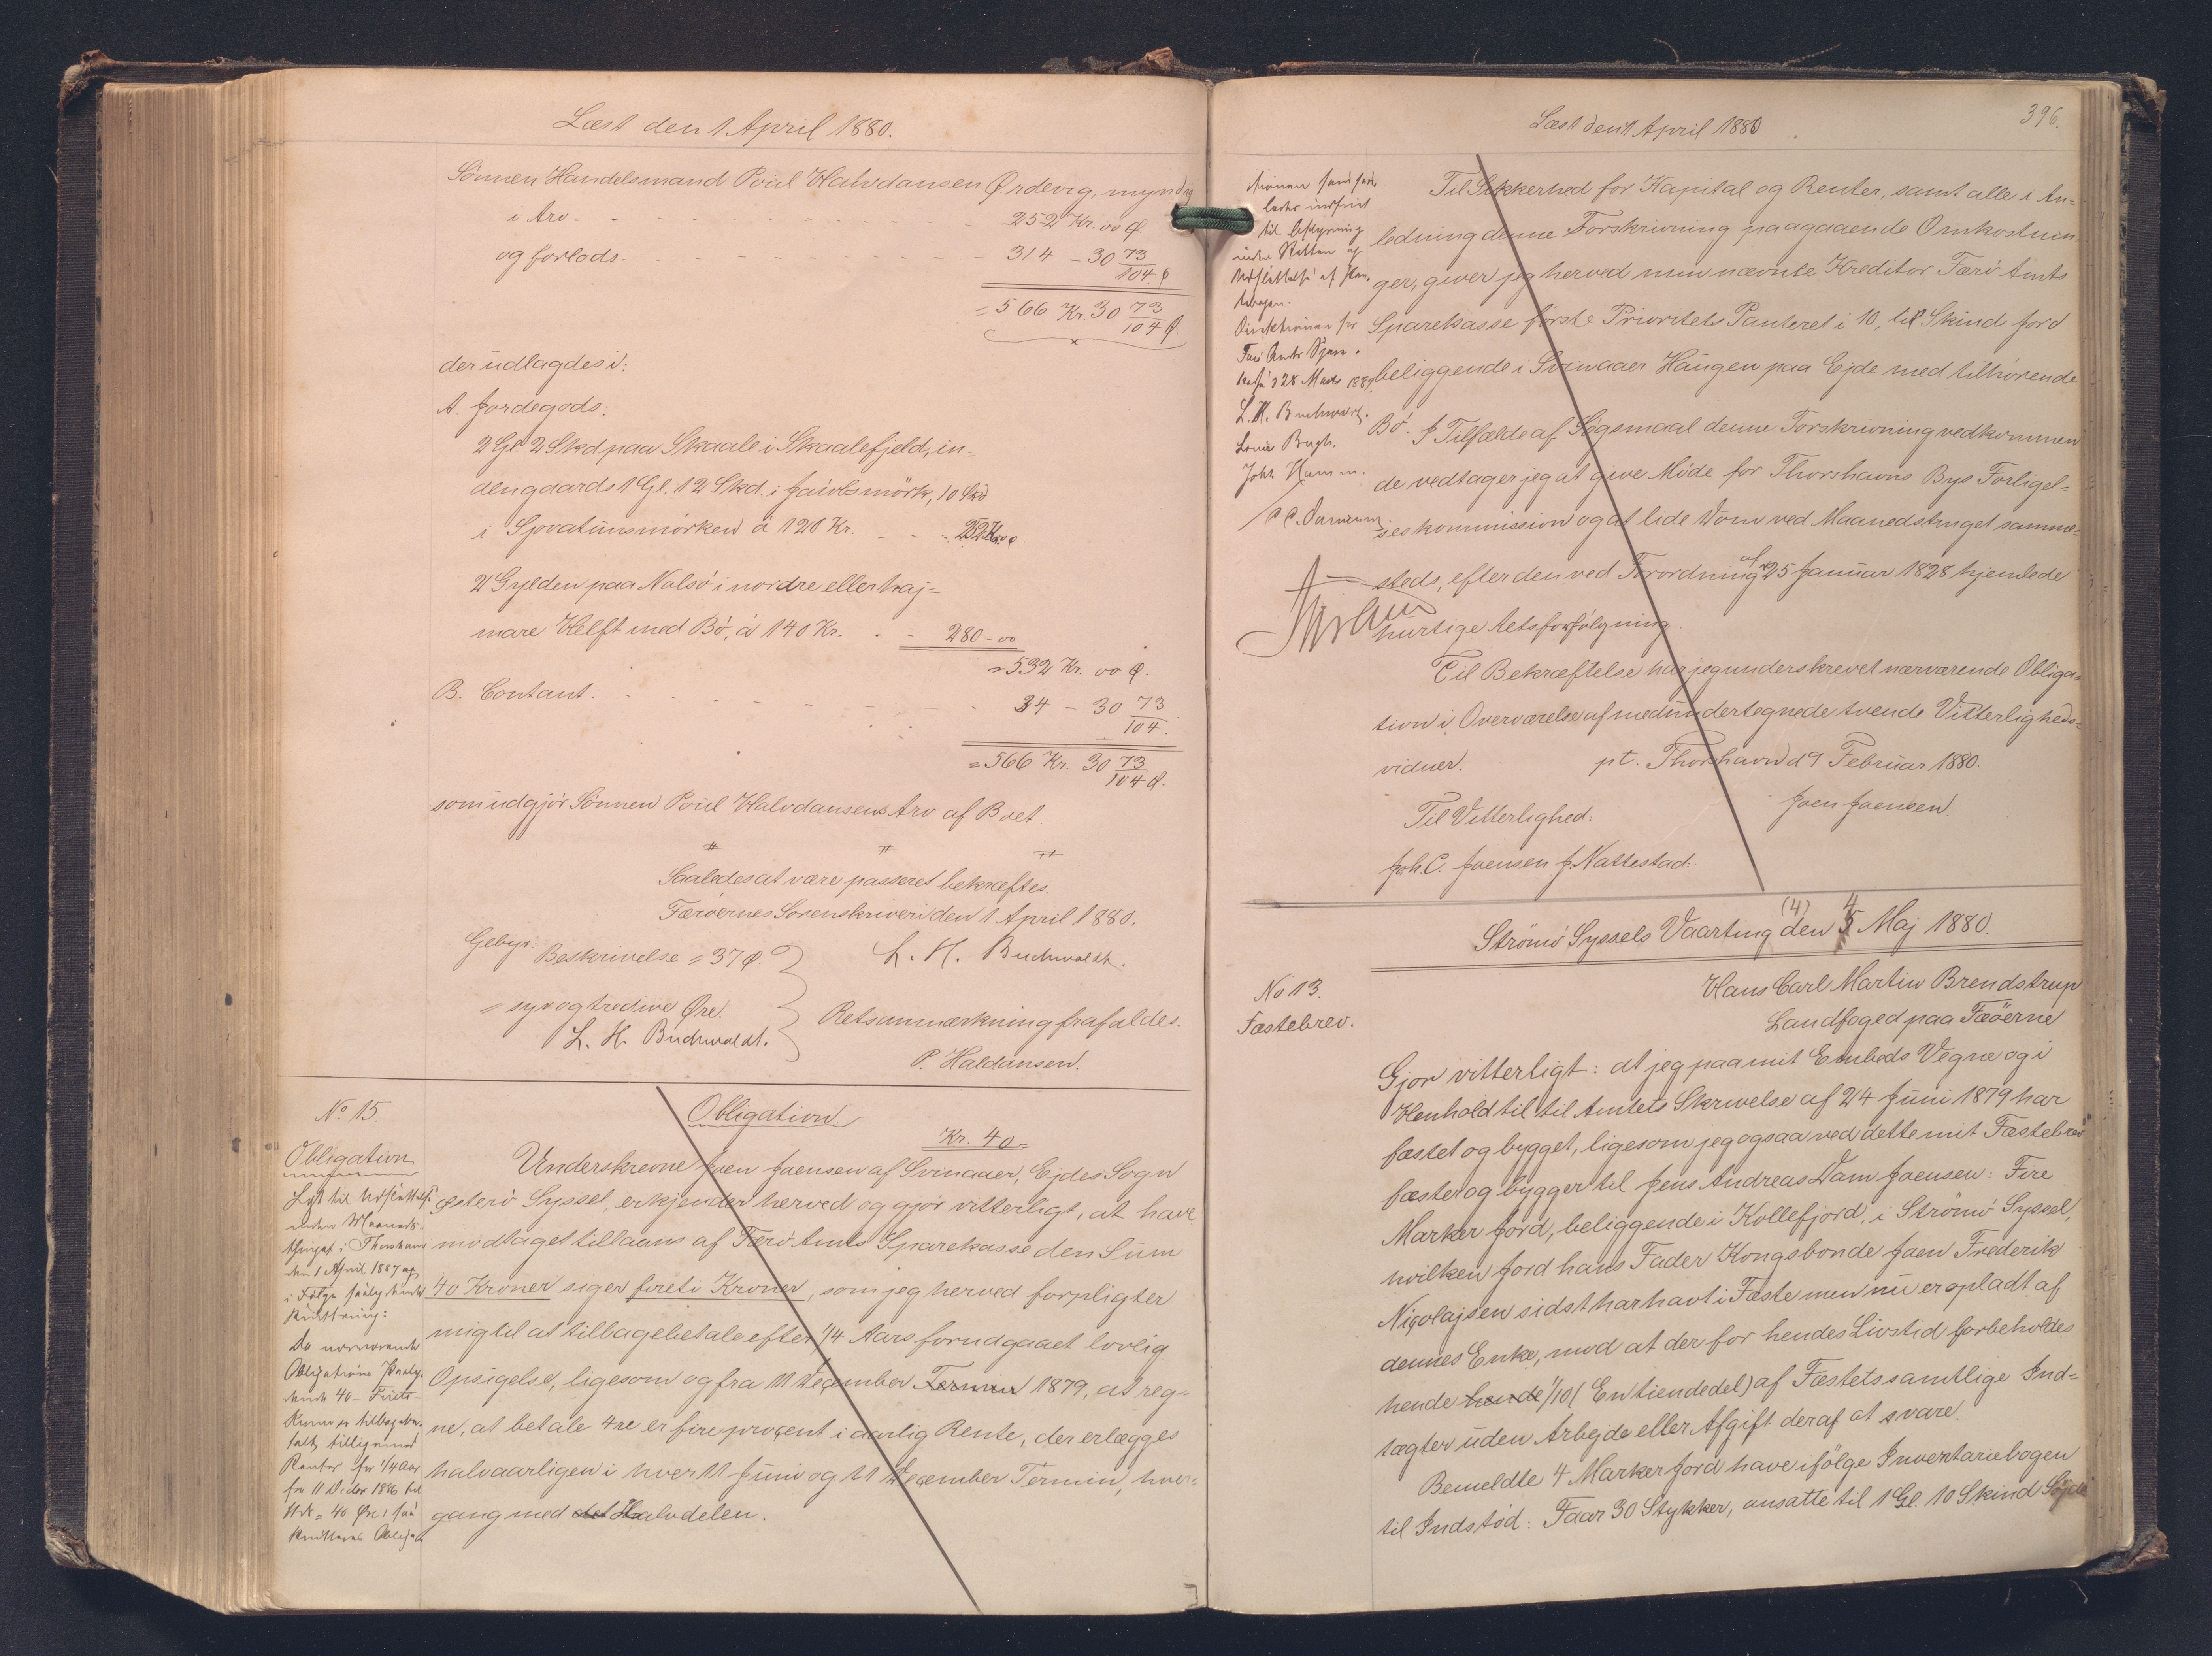 Læst den 1 April 1880.
Sønnen Handelsmand Poul Halvdansen Ørdevig, myndig
i Arv. 252 Kr. 00 Ø
og forlods. 314 - 30 73/104 Ø
= 566 Kr. 30 73/104 Ø.
der udlagdes i:
A. Jordegods:
2 Gl. 2 Skd paa Skaale i Skaalefjeld, in=
dengaards 1 Gl. 12 Skd. i Jacobsmörk, 10 Skd
i Sjovatunsmörken à 120 Kr. 252 Kr. 00
2 Gylden paa Nolsö i nordre eller hraj=
mare Helft med Bö, à 140 Kr. 280 - 00
= 532 Kr. 00 Ø.
B. Contant. 34 - 30 73/104.
= 566 Kr. 30 73/104 Ø.
som udgjör Sönnen Poul Halvdansens Arv af Boet.
Saaledes at være passeret bekræftes.
Færöernes Sorenskriveri den 1 April 1880.
Gebyr:
Beskrivelse = 37 Ø. L. H. Buchwaldt.
= syv og tredive Øre.
L. H. Buchwaldt.
Retsanmærkning frafaldes.
P. Haldansen.
No. 15.
Obligation.
Obligation
Kr. 40 =
Underskrevne Joen Joensen af Svinaaer, Ejdes Sogn
Østerö Syssel, erkjender herved og gjör vitterligt, at have
modtaget tillaans af Færö Amts Sparekasse den Sum
40 Kroner siger fireti Kroner, som jeg herved forpligter
mig til at tilbagebetale efter 1/4 Aars forudgaaet lovlig
Opsigelse, ligesom og fra 11 December Termin 1879, at reg=
ne, at betale 4re er fire procent i aarlig Rente, der erlægges
halvaarligen i hver 11 Juni og 11 December Termin, hver=
gang med det Halvdelen.
Lyst til Udslettelse
under Maaneds-
thinget i Thorshavn
den 1 April 1887 og
i Følge saalydende
Kvittering:
Da nærværende
Obligations Paaly-
dende 40 - Fireti -
Kroner er tilbagebe-
talt tilligemed
Renter for 1/4 Aar
fra 11 Decbr 1886 til
40 Øre, saa
kvitteres Obliga-
Læst den 1 April 1880
396.
tionen saa
ledes indfriet
til Aflysning
inden Retten og
Udslettelse af Pan-
tebogen.
Direktionen for
Færö Amts Spare-
kasse d 28 Marts 1887
L. H. Buchwaldt.
Louis Bergh.
Joh. Hamm.
Til Sikkerhed for Kapital og Renter, samt alle i An=
ledning denne Forskrivning paagaaende Omkostnin
ger, giver jeg herved min nævnte Kreditor Færö Amts
Sparekasse förste Prioritets Panteret i 10, ti Skind Jord
beliggende i Svinaaer Haugen paa Ejde med tilhörende
Bö. I Tilfælde af Sögsmaal denne Forskrivning vedkommen
de vedtager jeg at give Möde for Thorshavns Bys Forligel=
seskommission og at lide Dom ved Maanedstinget samme=
steds, efter den ved Forordning af 25 Januar 1828 hjemlede
hurtige Retsforfölgning.
Til Bekræftelse har jeg underskrevet nærværende Obliga=
tion i Overværelse af medundertegnede tvende Vitterligheds=
vidner. pt. Thorshavn d 9 Februar 1880.
Joen Joensen.
Til Vitterlighed:
Joh. C. Joensen J. Nattestad.
Strömö Syssels Vaarting den (4) 4 5 Maj 1880.
No 13.
Fæstebrev.
Hans Carl Martin Brendstrup
Landfoged paa Færöerne
Gjör vitterligt: at jeg paa mit Embeds Vegne og i
Henhold til til Amtets Skrivelse af 24 Juni 1879 har
fæstet og bygget, ligesom jeg ogsaa ved dette mit Fæstebrev
fæster og bygger til Jens Andreas Dam Joensen: Fire
Marker Jord, beliggende i Kollefjord, i Strömö Syssel,
hvilken Jord hans Fader Kongsbonde Joen Frederik
Nicolajsen sidst har havt i Fæste men nu er opladt af
dennes Enke, mod at der for hendes Livstid forbeholdes
hende hende 1/10 (En tiendedel) af Fæstets samtlige Ind=
tægter uden Arbejde eller Afgift deraf at svare.
Bemeldte 4 Marker Jord have ifölge Inventariebogen
til Indstöd: Faar 30 Stykker, ansatte til 1 Gl. 10 Skind